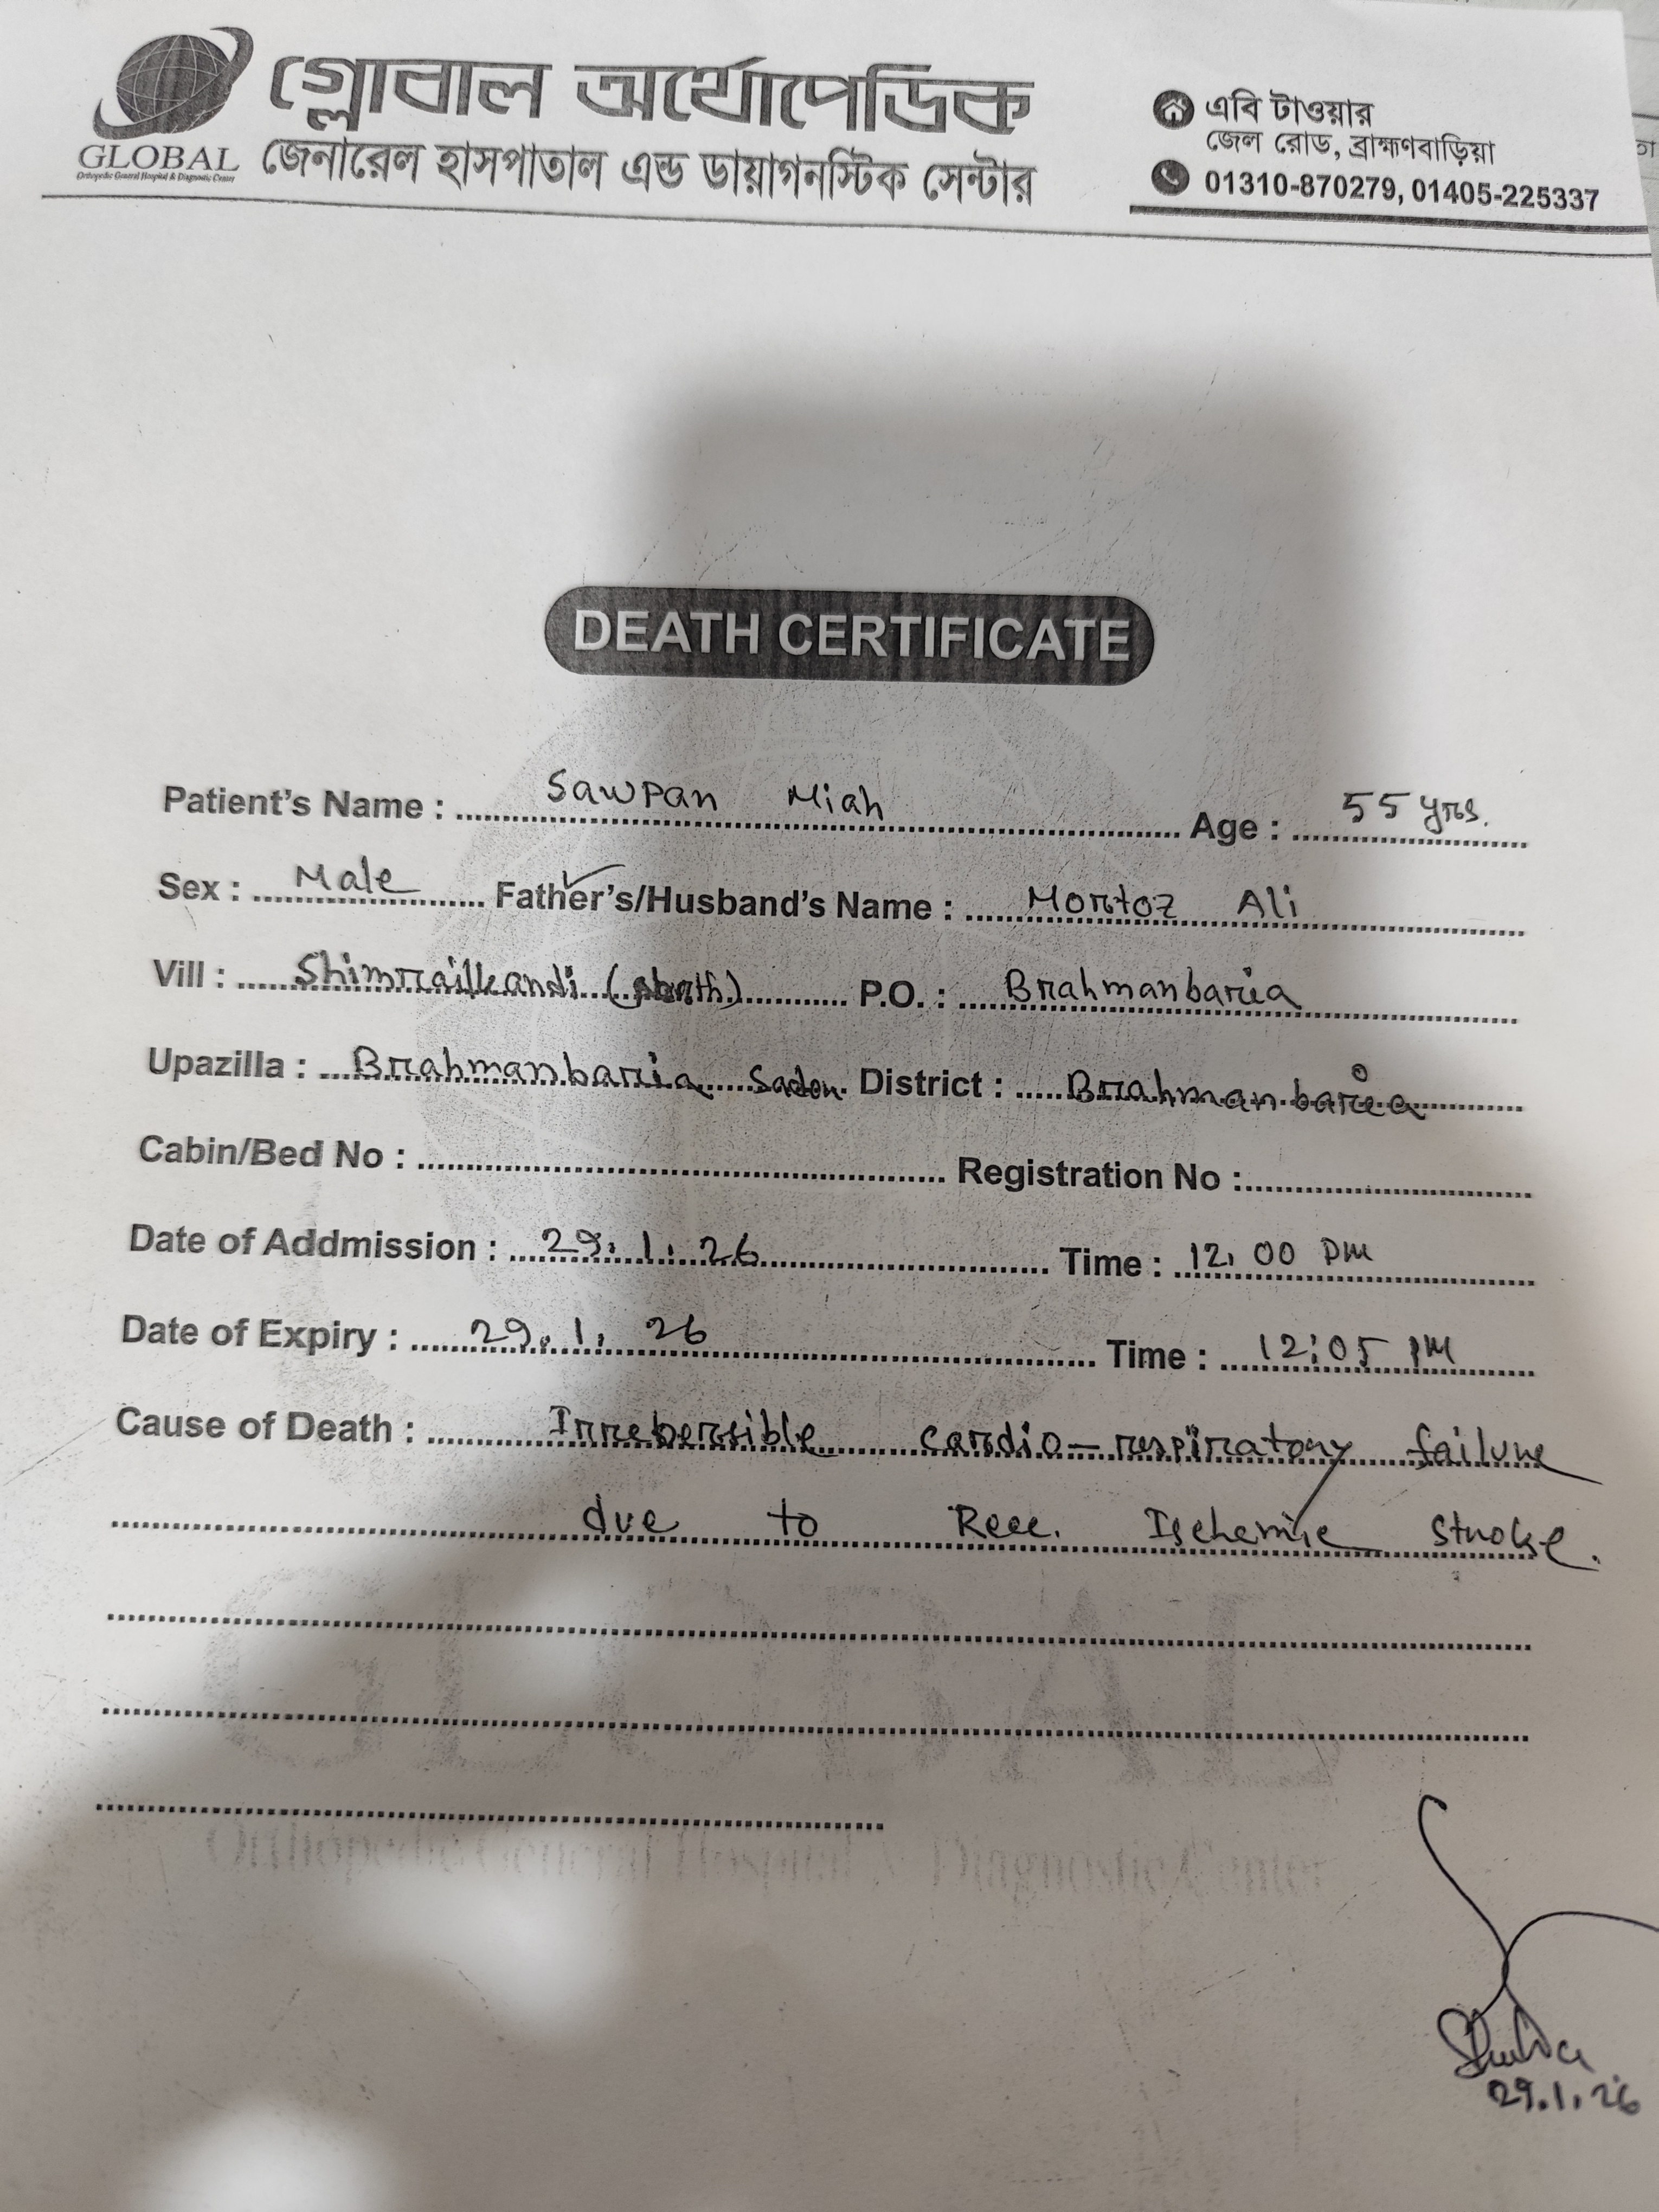 গ্লোবাল অর্থোপেডিক
জেনারেল হাসপাতাল এন্ড ডায়াগনস্টিক সেন্টার
GLOBAL
Orthopedic General Hospital & Diagnostic Center
এবি টাওয়ার
জেল রোড, ব্রাহ্মণবাড়িয়া
01310-870279, 01405-225337
DEATH CERTIFICATE
Patient's Name : Sawpan Miah Age : 55 yrs.
Sex : Male Father's/Husband's Name : Mortoz Ali
Vill : Shimrailkandi P.O. : Brahmanbaria
Upazilla : Brahmanbaria Sador District : Brahmanbaria
Cabin/Bed No : Registration No :
Date of Addmission : 29.1.26 Time : 12:00 PM
Date of Expiry : 29.1.26 Time : 12:05 PM
Cause of Death : Irrebersible cardio-respiratory failure
due to Rece. Ischemic stroke.
GLOBAL
Orthopedic General Hospital & Diagnostic Center
29.1.26